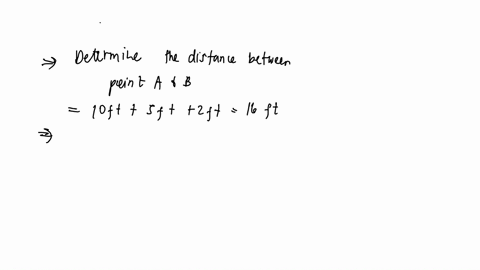 ⇒ Determine the distance between
point A & B
= 10ft + 5ft + 2ft = 16 ft
⇒